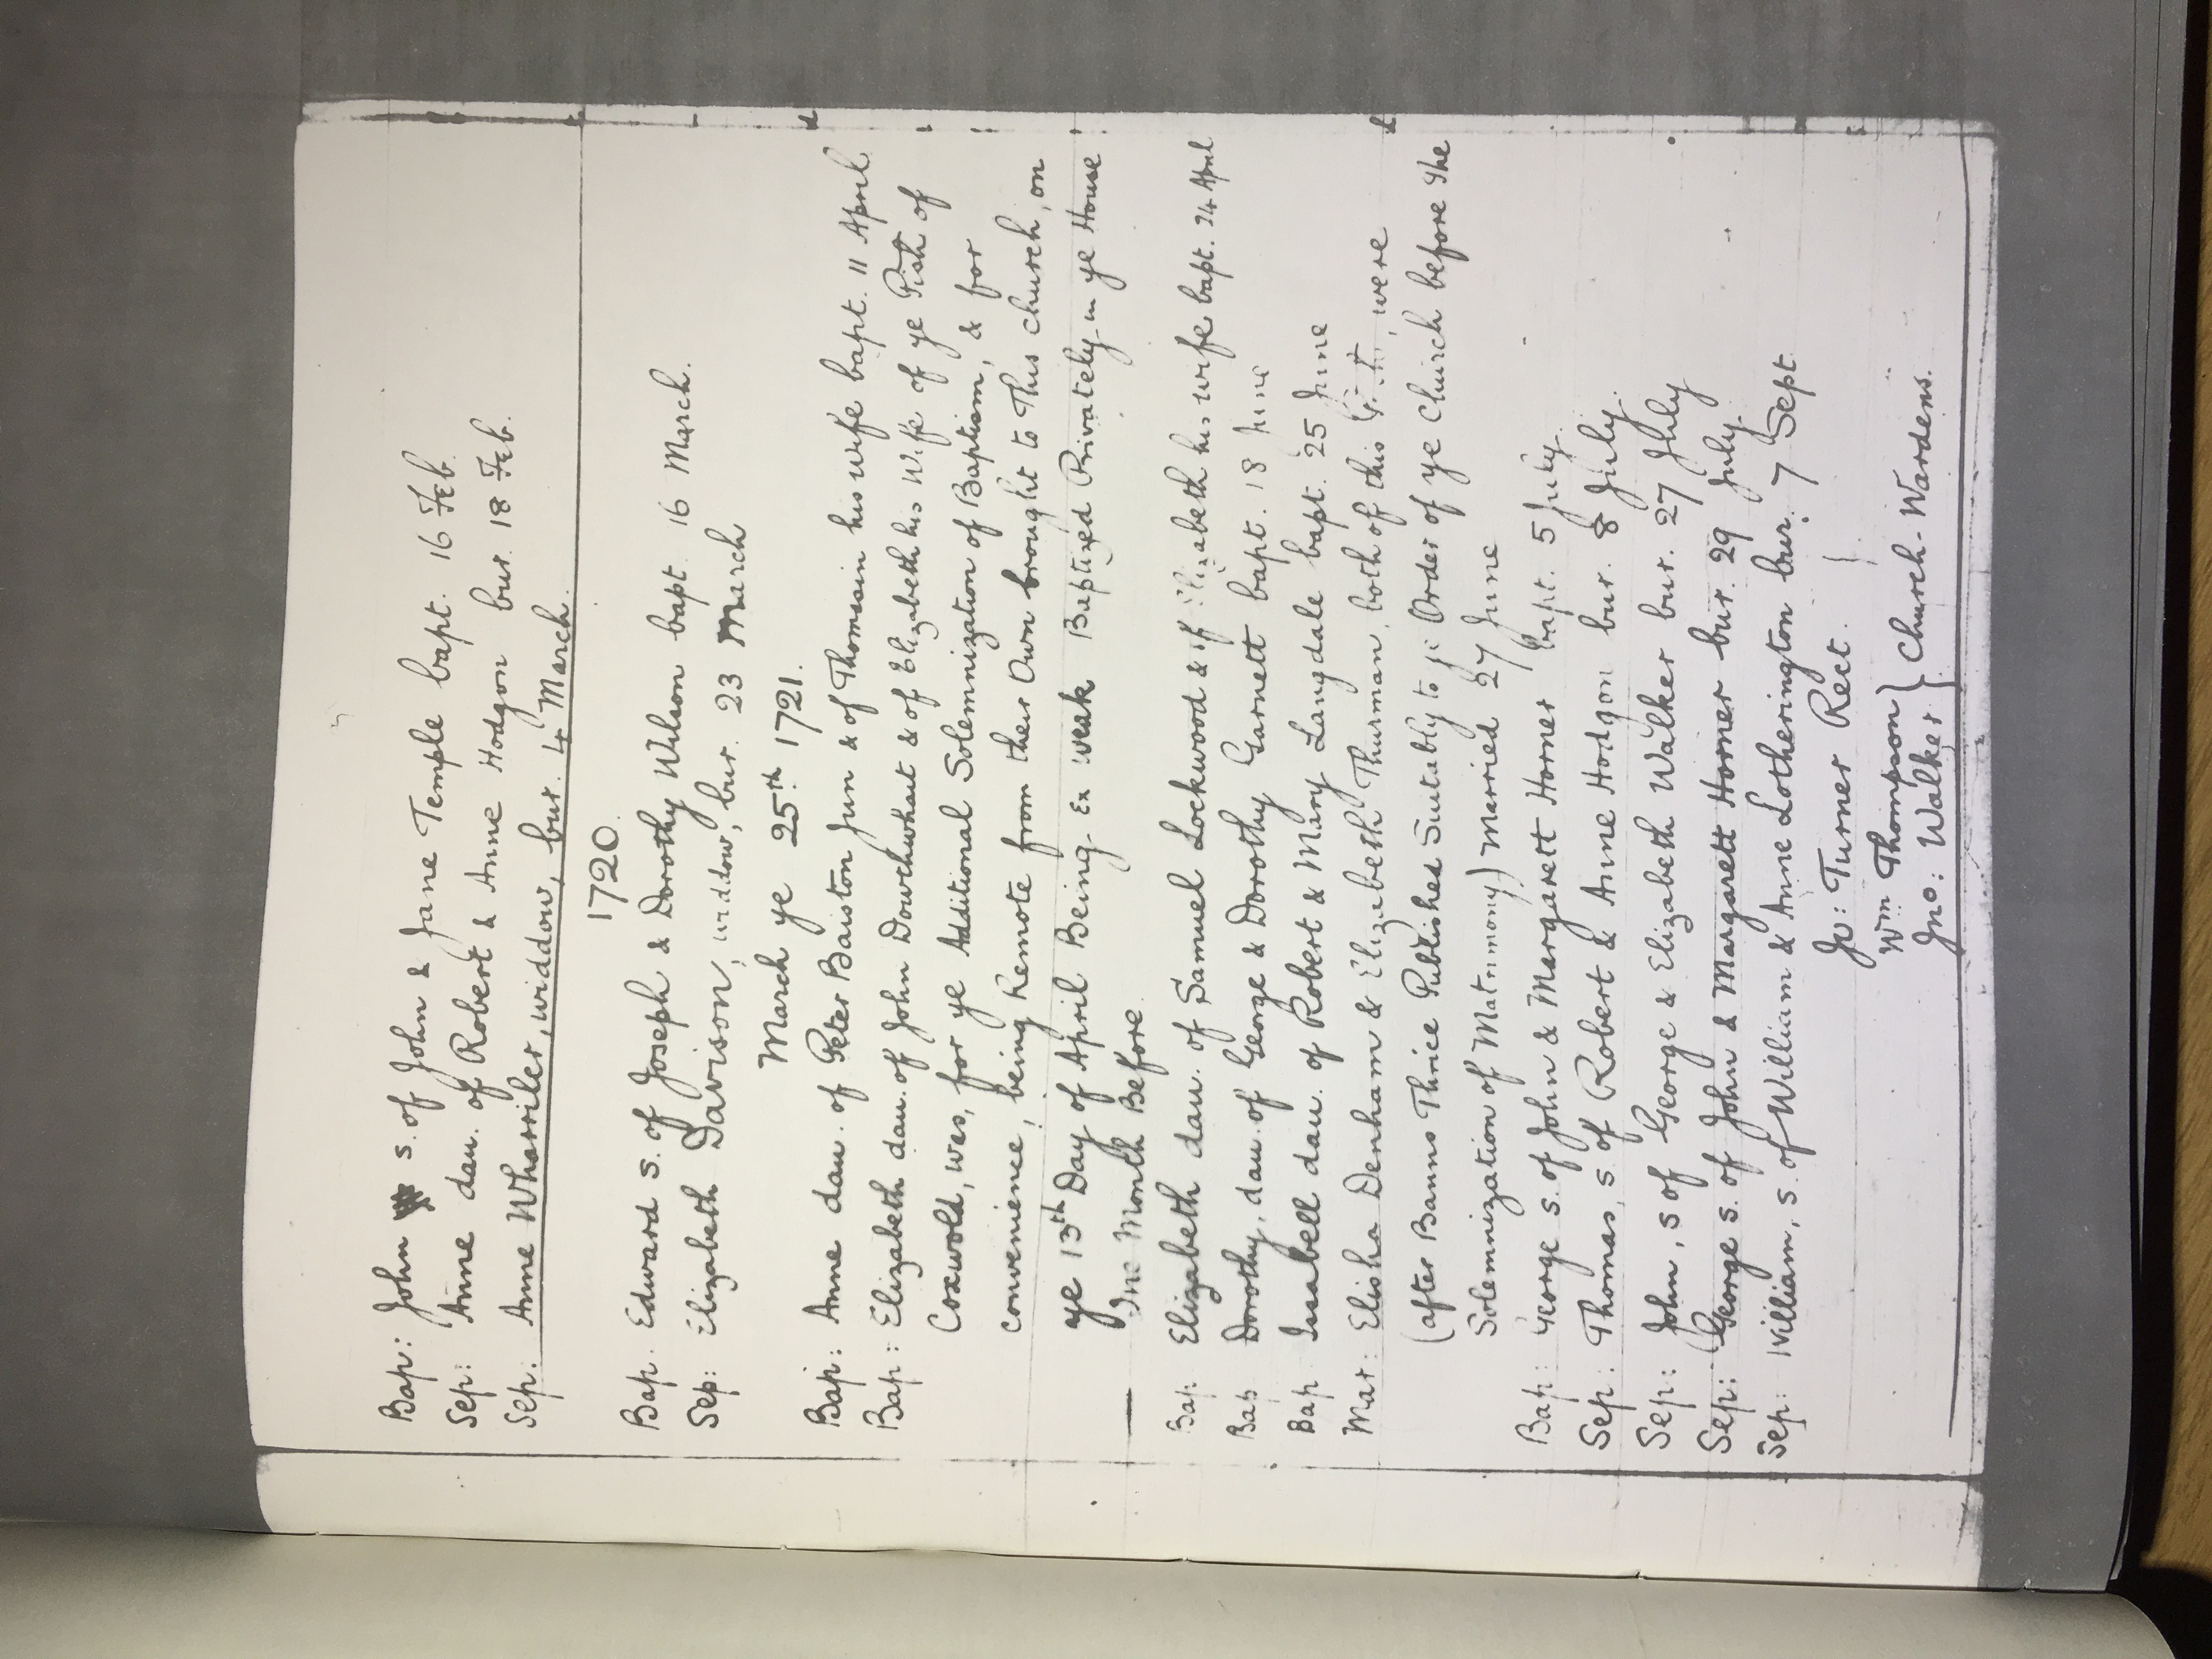 Bap: John s. of John & Jane Temple bapt. 16 Feb.
Sep: Anne dau. of Robert & Anne Hodgon bur. 18 Feb.
Sep: Anne Wharriler, widdow, bur. 4 March.
1720.
Bap. Edward s. of Joseph & Dorothy Wilson bapt. 16 March.
Sep: Elizabeth Davison, widdow, bur. 23 March
March ye 25th 1721.
Bap: Anne dau. of Peter Baiston Jun & of Thomasin his wife bapt. 11 April
Bap: Elizabeth dau. of John Dowthwhait & of Elizabeth his Wife of ye Pish of
Coxwold, was, for ye Additional Solemnization of Baptism, & for
convenience, being Remote from their Own brought to This church, on
ye 13th Day of April Being Ex weak Baptized Privately in ye House
One Month Before.
Bap. Elizabeth dau. of Samuel Lockwood & of Elizabeth his wife bapt. 24 April
Bap Dorothy, dau. of George & Dorothy Garnett bapt. 18 June
Bap. Isabell dau. of Robert & Mary Langdale bapt. 25 June
Mar: Elisha Denham & Elizabeth Thurman, both of this were
(after Banns Thrice Published Suitably to ye Order of ye Church before the
Solemnization of Matrimony) Married 27 June
Bap: George s. of John & Margarett Horner bapt. 5 July.
Sep: Thomas, s. of Robert & Anne Hodgon bur. 8 July.
Sep: John, s of George & Elizabeth Walker bur. 27 July
Sep: George s. of John & Margarett Horner bur. 29 July.
Sep: William, s. of William & Anne Lotherington bur. 7 Sept
Jo: Turner Rect.
Wm Thompson } Church-Wardens.
Jno: Walker }